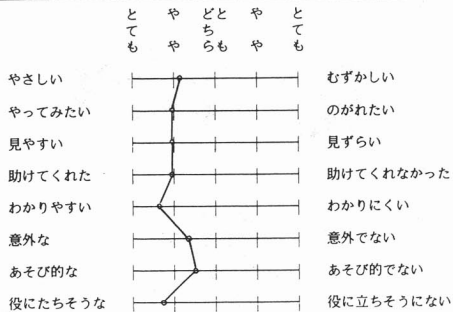 とても やや どちらとも やや とても
やさしい むずかしい
やってみたい のがれたい
見やすい 見ずらい
助けてくれた 助けてくれなかった
わかりやすい わかりにくい
意外な 意外でない
あそび的な あそび的でない
役にたちそうな 役に立ちそうにない